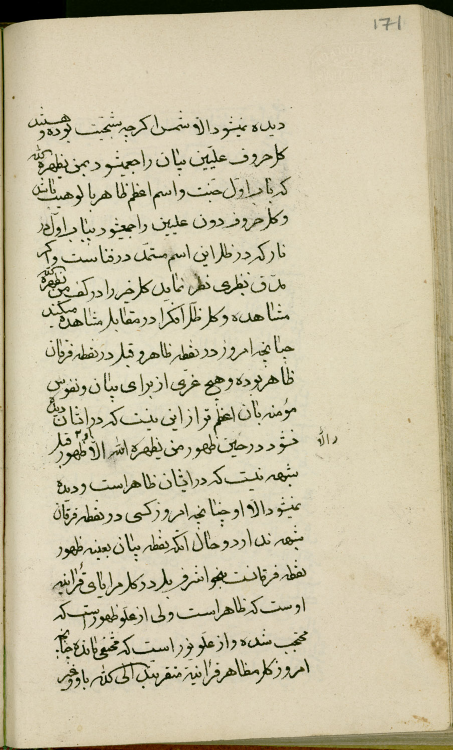 171
دیده نمیشود الا و شمس اگرچه بشجیت بوده و هستند
کل حروف علیین بیان راجع میشود بمن یظهره الله
که باب اول جنت و اسم اعظم ظاهر بالوهیت باشد
و کل حروف دون علیین راجع میشود بباب اول در
نار که در ظل این اسم مستمد در فنا است و اگر
نظری نظر نماید کل خیر را در کف من یظهره الله
مشاهده و کل ظل آنرا در مقابل مشاهده میکند
چنانچه امروز در نقطه ظاهر و قبل در نقطه فرقان
ظاهر بوده و هیچ عزی از برای بیان و نفوس
مؤمنه بآن اعظم تر از این نیست که در ایشان دیده
نشود در حین ظهور من یظهره الله الا او ظهور قبل
والا
شبهه نیست که در ایشان ظاهر است و دیده
نمیشود الا او چنانچه امروز کسی در نقطه فرقان
شبهه ندارد و حال آنکه نقطه بیان بعینه ظهور
نقطه فرقانست در کل مرایای قرآنیه
اوست که ظاهر است ولی از علو ظهور است که
محتجب شده و از علو نور است که مختفی مانده چنانچه
امروز کل مظاهر فرقانیه متقربند الی الله باو و غیر